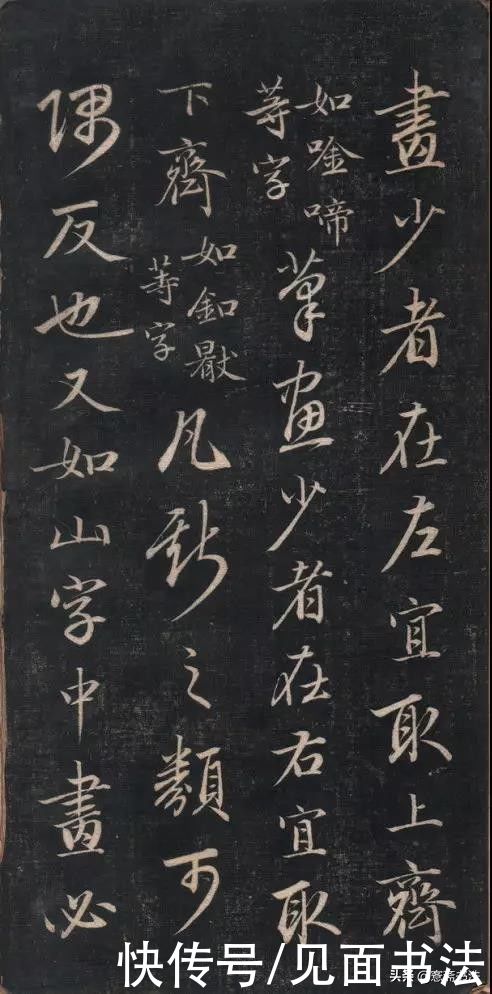 畫少者在左宜取上齊
如唫啼
等字
筆畫少者在右宜取
下齊
如釦
等字
凡斯之類可
隅反也又如山字中畫必
快传号/见面书法